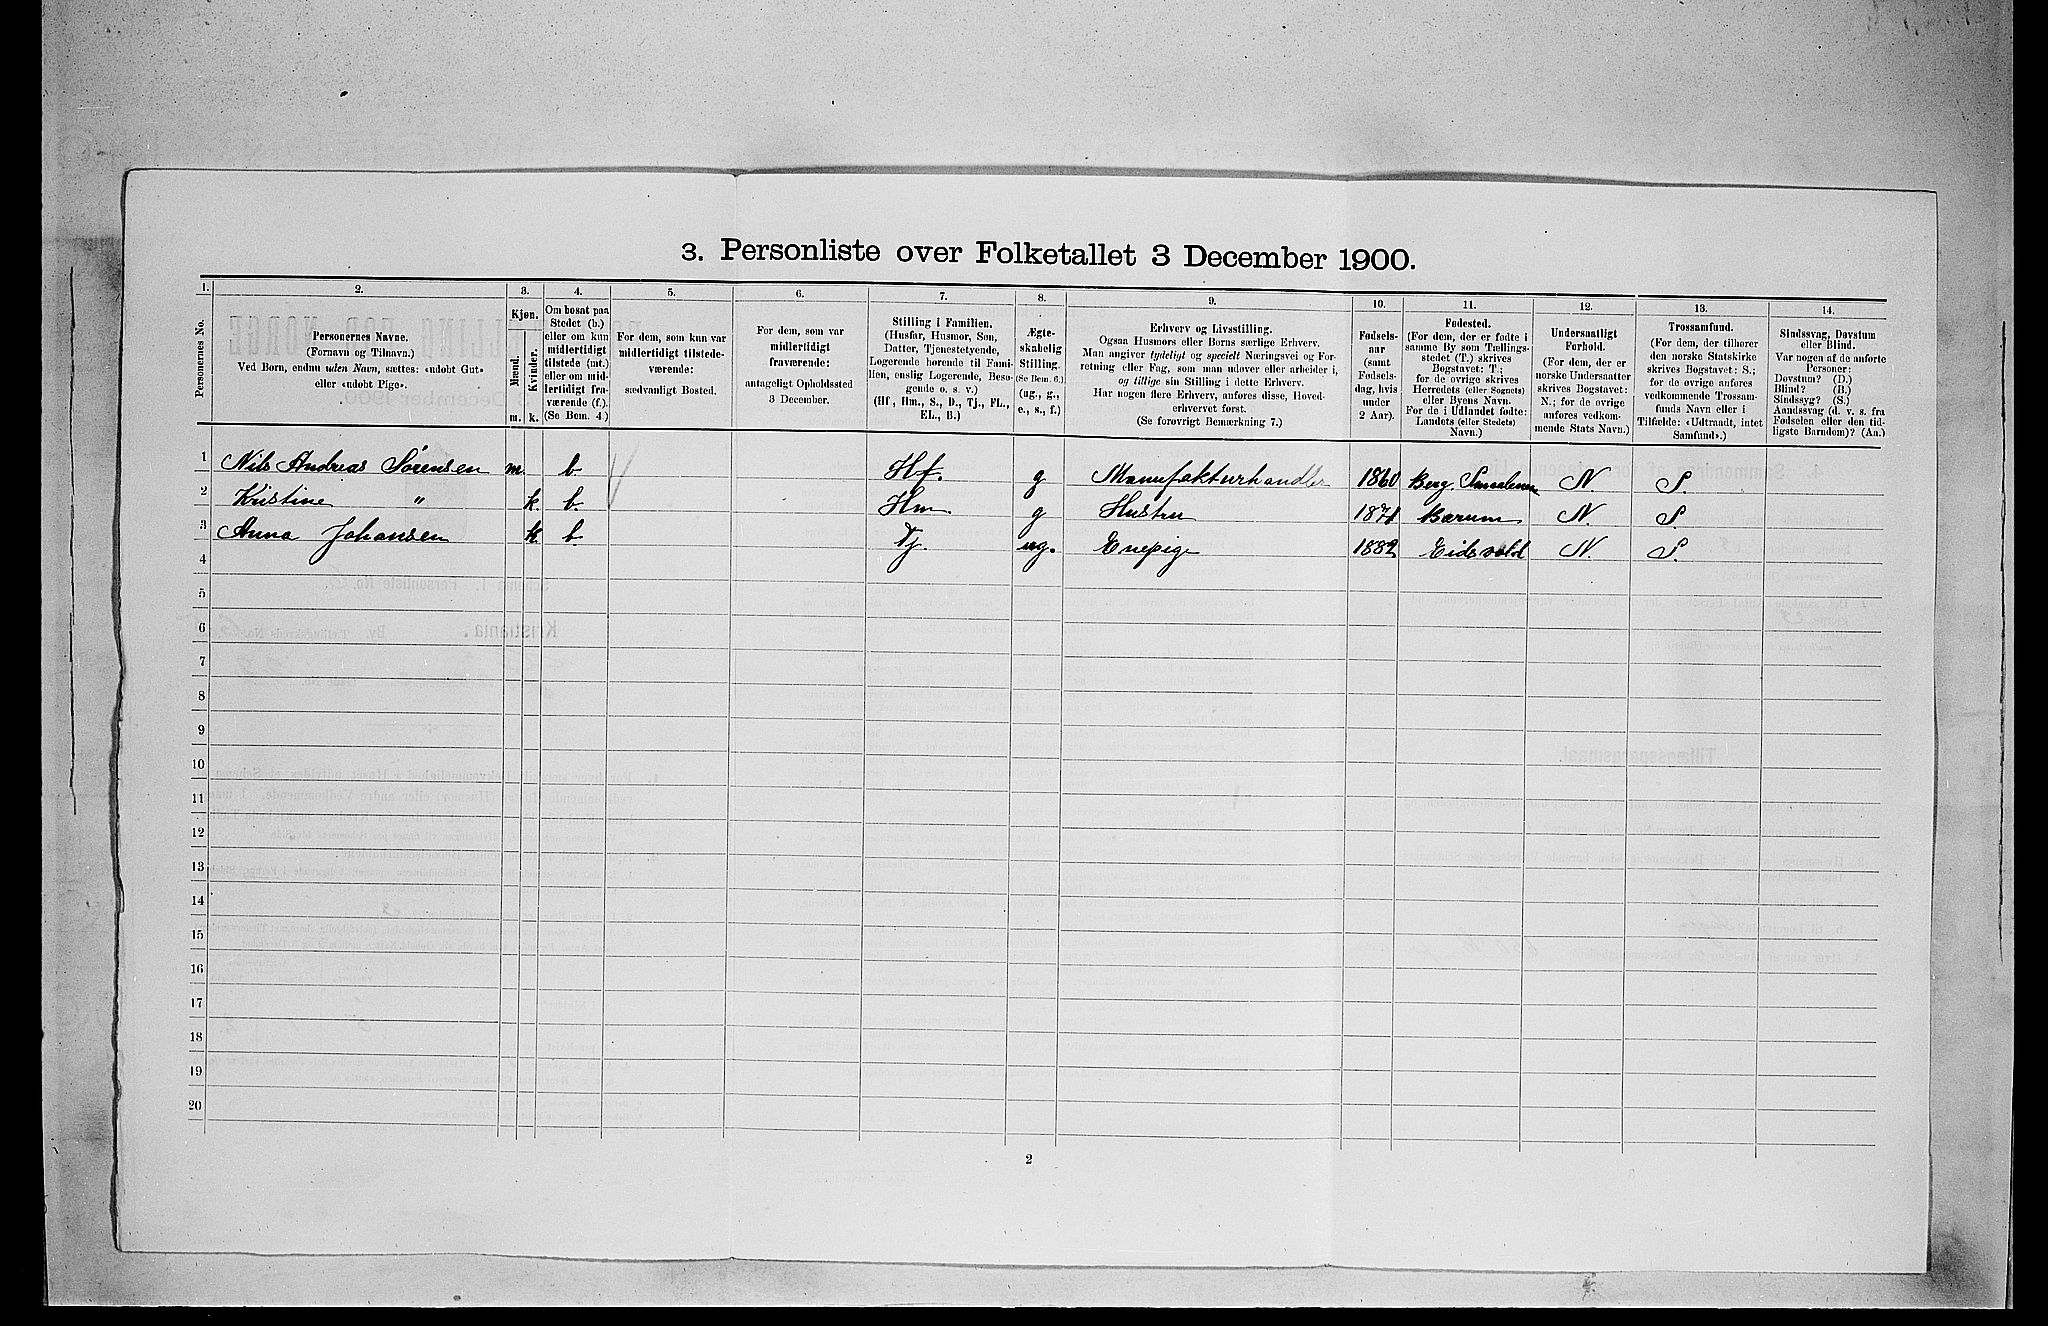 3. Personliste over Folketallet 3 December 1900.
1.
Personernes No.
2.
Personernes Navne.
(Fornavn og Tilnavn.)
Ved Børn, endnu uden Navn, sættes: «udøbt Gut»
eller «udøbt Pige».
3.
Kjøn.
Mænd.
Kvinder.
m. k.
4.
Om bosat paa
Stedet (b.)
eller om kun
midlertidigt
tilstede (mt.)
eller om mid-
lertidigt fra-
værende (f.).
(Se Bem. 4.)
5.
For dem, som kun var
midlertidigt tilstede-
værende:
sædvanligt Bosted.
6.
For dem, som var
midlertidigt
fraværende:
antageligt Opholdssted
3 December.
7.
Stilling i Familien.
(Husfar, Husmor, Søn,
Datter, Tjenestetyende,
Logerende hørende til Fami-
lien, enslig Logerende, Besø-
gende o. s. v.)
(Hf., Hm., S., D., Tj., FL.,
EL., B.)
8.
Ægte-
skabelig
Stilling.
(Se Bem. 6.)
(ug., g.,
e., s., f.)
9.
Erhverv og Livsstilling.
Ogsaa Husmors eller Børns særlige Erhverv.
Man angiver tydeligt og specielt Næringsvei og For-
retning eller Fag, som man udøver eller arbeider i,
og tillige sin Stilling i dette Erhverv.
Har nogen flere Erhverv, anføres disse, Hoved-
erhvervet først.
(Se forøvrigt Bemærkning 7.)
10.
Fødsels-
aar
(samt
Fødsels-
dag, hvis
under
2 Aar).
11.
Fødested.
(For dem, der er fødte i
samme By som Tællings-
stedet (T.) skrives
Bogstavet: T.;
for de øvrige skrives
Herredets (eller Sognets)
eller Byens Navn.
For de i Udlandet fødte:
Landets (eller Stedets)
Navn.)
12.
Undersaatligt
Forhold.
(For dem, der er
norske Undersaatter
skrives Bogstavet:
N.; for de øvrige
anføres vedkom-
mende Stats Navn.)
13.
Trossamfund.
(For dem, der tilhører
den norske Statskirke
skrives Bogstavet: S.;
for de øvrige anføres
vedkommende Trossam-
funds Navn eller i
Tilfælde: «Udtraadt, intet
Samfund».)
14.
Sindssvag, Døvstum
eller Blind.
Var nogen af de anførte
Personer:
Døvstum? (D.)
Blind? (B.)
Sindssyg? (S.)
Aandssvag (d. v. s. fra
Fødselen eller den tid-
ligste Barndom)? (Aa.)
1 Nils Andreas Sörensen m. b. Hf. g Manufakturhandler 1860 Berg. Smalenene N. S.
2 Kristine " k. b. Hm. g Hustru 1871 Bærum N. S.
3 Anna Johansen k b. Tj. ug. Enepige 1882 Eidsvold N. S.
4
5
6
7
8
9
10
11
12
13
14
15
16
17
18
19
20
2